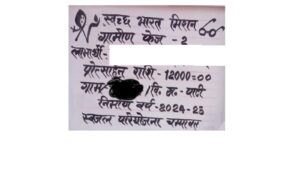 स्वच्छ भारत मिशन
ग्रामीण फेज - 2
लाभार्थी-
प्रोत्साहन राशि - 12000=00
ग्राम /वि. ख.- पाटी
निर्माण वर्ष-2024-25
स्वजल परियोजना चम्पावत